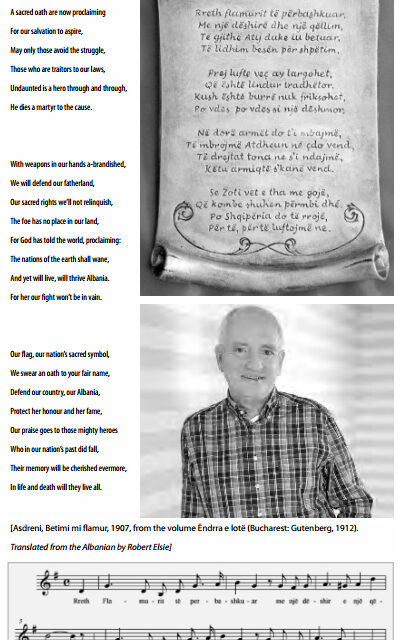 A sacred oath are now proclaiming
For our salvation to aspire,
May only those avoid the struggle,
Those who are traitors to our laws,
Undaunted is a hero through and through,
He dies a martyr to the cause.
With weapons in our hands a-brandished,
We will defend our fatherland,
Our sacred rights we'll not relinquish,
The foe has no place in our land,
For God has told the world, proclaiming:
The nations of the earth shall wane,
And yet will live, will thrive Albania.
For her our fight won't be in vain.
Our flag, our nation's sacred symbol,
We swear an oath to your fair name,
Defend our country, our Albania,
Protect her honour and her fame,
Our praise goes to those mighty heroes
Who in our nation's past did fall,
Their memory will be cherished evermore,
In life and death will they live all.
Rreth flamurit të përbashkuar,
Me një dëshirë dhe një qëllim,
Të gjithë Atij duke iu betuar,
Të lidhim besën për shpëtim,
Prej lufte veç ay largohet,
Që është lindur tradhëtor,
Kush është burrë nuk friksohet,
Po vdes, po vdes si një dëshmor.
Në dorë armët do t'i mbajmë,
Të mbrojmë Atdheun në çdo vend,
Të drejtat tona ne s'i ndajmë,
Këtu armiqtë s'kanë vend.
Se Zoti vet e tha me gojë,
Që kombe shuhen përmbi dhé,
Po Shqipëria do të rrojë,
Për të, për të luftojmë ne.
[Asdreni, Betimi mi flamur, 1907, from the volume Ëndrra e lotë (Bucharest: Gutenberg, 1912).
Translated from the Albanian by Robert Elsie]
Rreth Fla - mu - rit të për - ba - shku - ar me një dë - shir e një që -
5